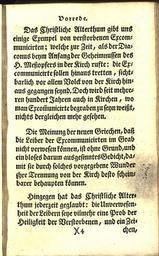 Vorrede.
Das Christliche Alterthum gibt uns
einige Exempel von verstorbenen Excom-
municirten; welche zur Zeit, als der Dia-
conus beym Anfang der Geheimnussen des
H. Meßopfers in der Kirch rufte: die Ex-
communicirte sollen hinaus tretten, sicht-
barlich vor allem Volck von der Kirch hin-
aus gegangen seynd. Doch wird seit mehre-
ren hundert Jahren auch in Kirchen, wo
man Excommunicirte begraben zu seyn weißt,
nichts dergleichen verspühret.
Die Meinung der neuen Griechen, daß
die Leiber der Excommunicirten im Grab
nicht verwesen können, ist ohne Grund, und
ein bloses darum ausgesonnenes Gedicht, da-
mit sie durch solches vorgegebene Wunder
ihre Trennung von der Kirch desto schein-
barer behaupten können.
Hingegen hat das Christliche Alter-
thum jederzeit geglaubt: die Unverwesen-
heit der Leibern seye vilmehr eine Prob der
Heiligkeit der Verstorbenen, und ein Zei-
X 4
chen,